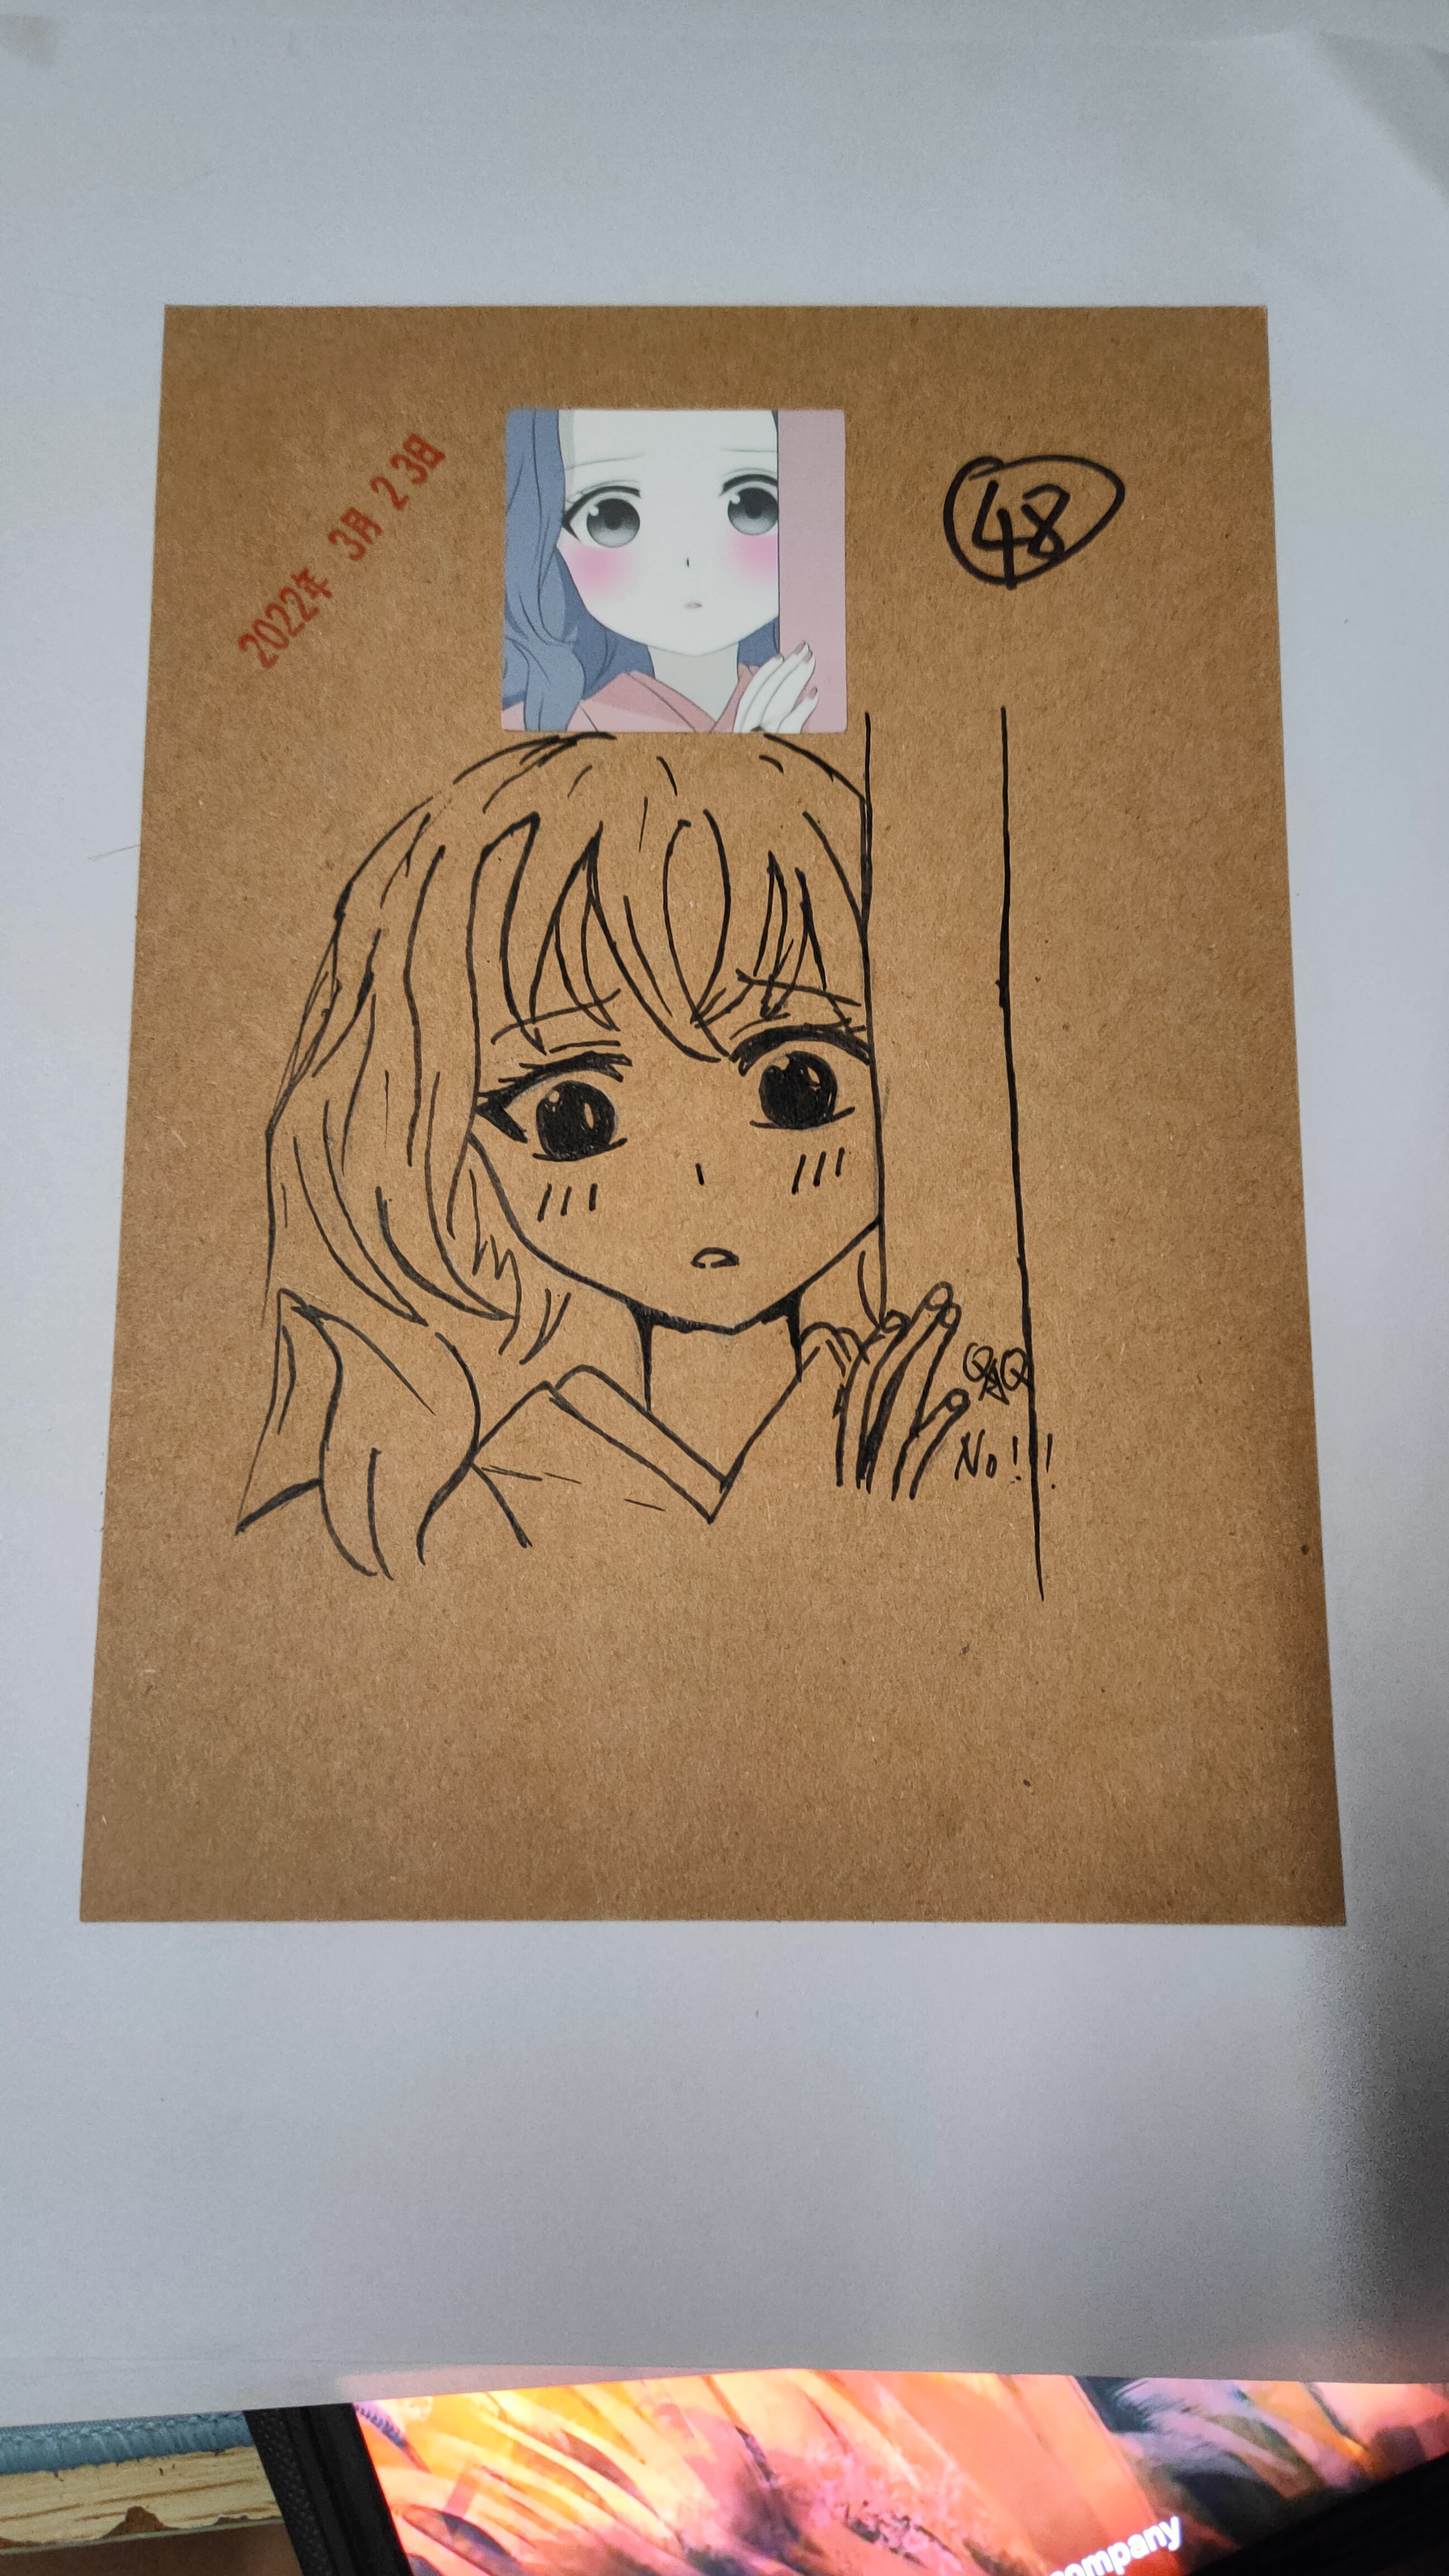 2022年 3月 23日
48
QAQ
No!!
company